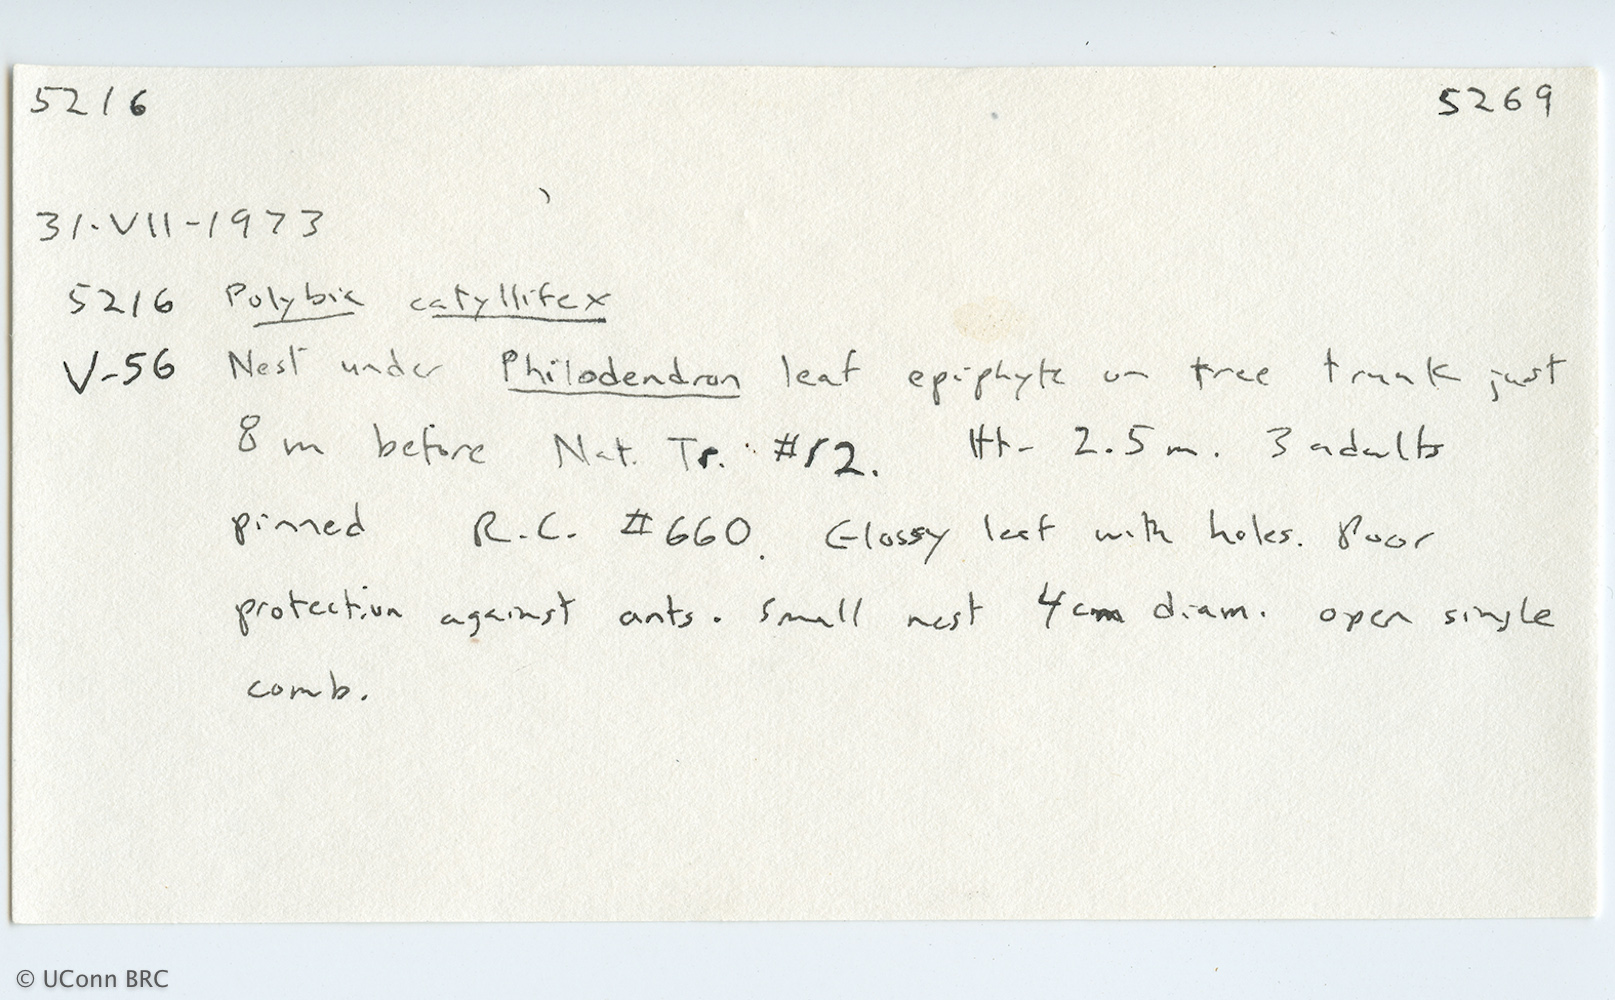 5216 5269
31-VII-1973
5216 Polybia catyllifex
V-56 Nest under Philodendron leaf epiphyte on tree trunk just
8 m before Nat. Tr. #12. Ht- 2.5 m. 3 adults
pinned R.C. #660. Glossy leaf with holes. Poor
protection against ants. Small nest 4cm diam. open single
comb.
© UConn BRC